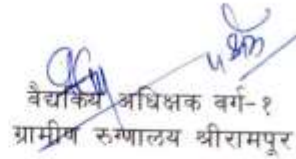 वैद्यकिय अधिक्षक वर्ग-१
ग्रामीण रुग्णालय श्रीरामपुर